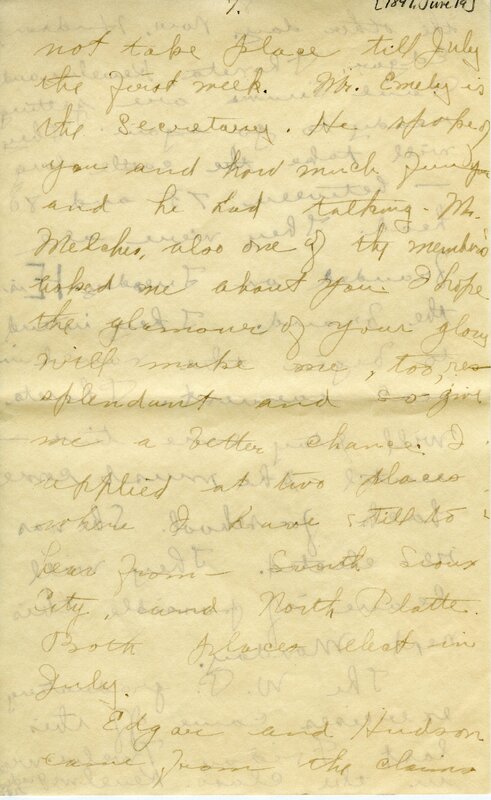 7.
[1897, June 19]
not take place till July
the first week. Mr. Emely is
the Secretary. He spoke of
you and how much fun you
and he had talking. Mr.
Melcher, also one of the members
asked me about you. I hope
the glamour of your glory
will make me, too, res-
splendant and so give
me a better chance. I
applied at two places
where I have still to
hear from – South Sioux
City, and North Platte.
Both places elect in
July.
Edgar and Hudson
came from the claims